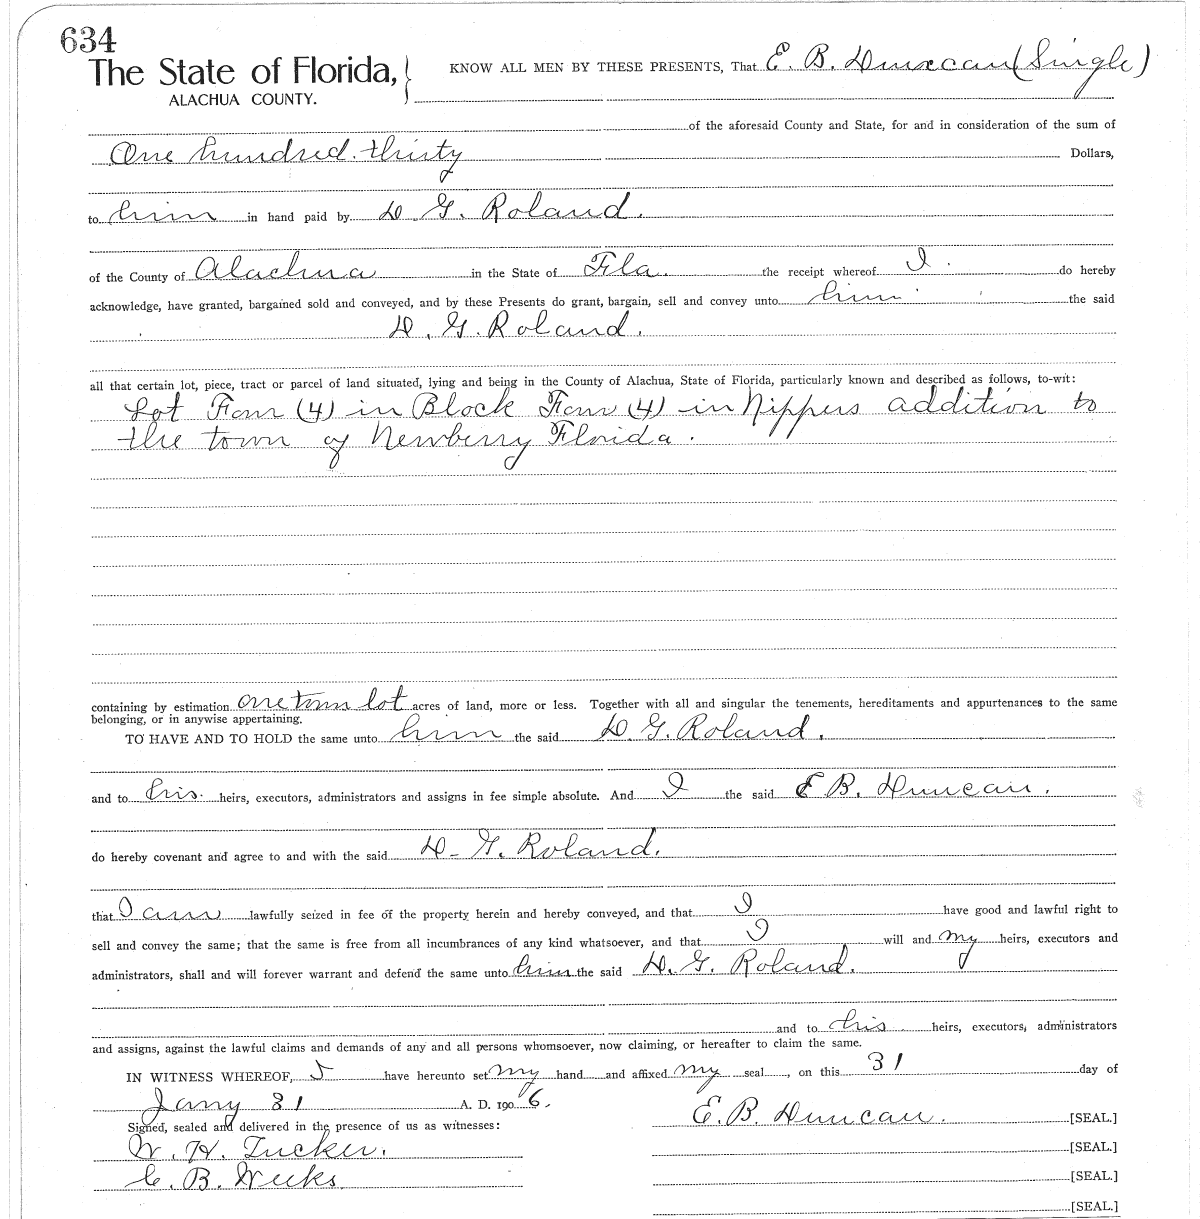 634
The State of Florida,
ALACHUA COUNTY.
KNOW ALL MEN BY THESE PRESENTS, That E. B. Duncan (Single)
of the aforesaid County and State, for and in consideration of the sum of
One hundred thirty Dollars,
to him in hand paid by D. G. Roland.
of the County of Alachua in the State of Fla. the receipt whereof I do hereby
acknowledge, have granted, bargained sold and conveyed, and by these Presents do grant, bargain, sell and convey unto him the said
D. G. Roland.
all that certain lot, piece, tract or parcel of land situated, lying and being in the County of Alachua, State of Florida, particularly known and described as follows, to-wit:
Lot Four (4) in Block Four (4) in Nippers addition to
the town of Newberry Florida.
containing by estimation one town lot acres of land, more or less. Together with all and singular the tenements, hereditaments and appurtenances to the same
belonging, or in anywise appertaining.
TO HAVE AND TO HOLD the same unto him the said D. G. Roland.
and to his heirs, executors, administrators and assigns in fee simple absolute. And I the said E B. Duncan.
do hereby covenant and agree to and with the said D. G. Roland.
that I am lawfully seized in fee of the property herein and hereby conveyed, and that I have good and lawful right to
sell and convey the same; that the same is free from all incumbrances of any kind whatsoever, and that I will and my heirs, executors and
administrators, shall and will forever warrant and defend the same unto him the said D. G. Roland.
and to his heirs, executors, administrators
and assigns, against the lawful claims and demands of any and all persons whomsoever, now claiming, or hereafter to claim the same.
IN WITNESS WHEREOF, I have hereunto set my hand and affixed my seal, on this 31 day of
Jany 31 A. D. 1906.
E. B. Duncan. [SEAL.]
Signed, sealed and delivered in the presence of us as witnesses:
W. H. Tucker. [SEAL.]
C. B. Weeks [SEAL.]
[SEAL.]